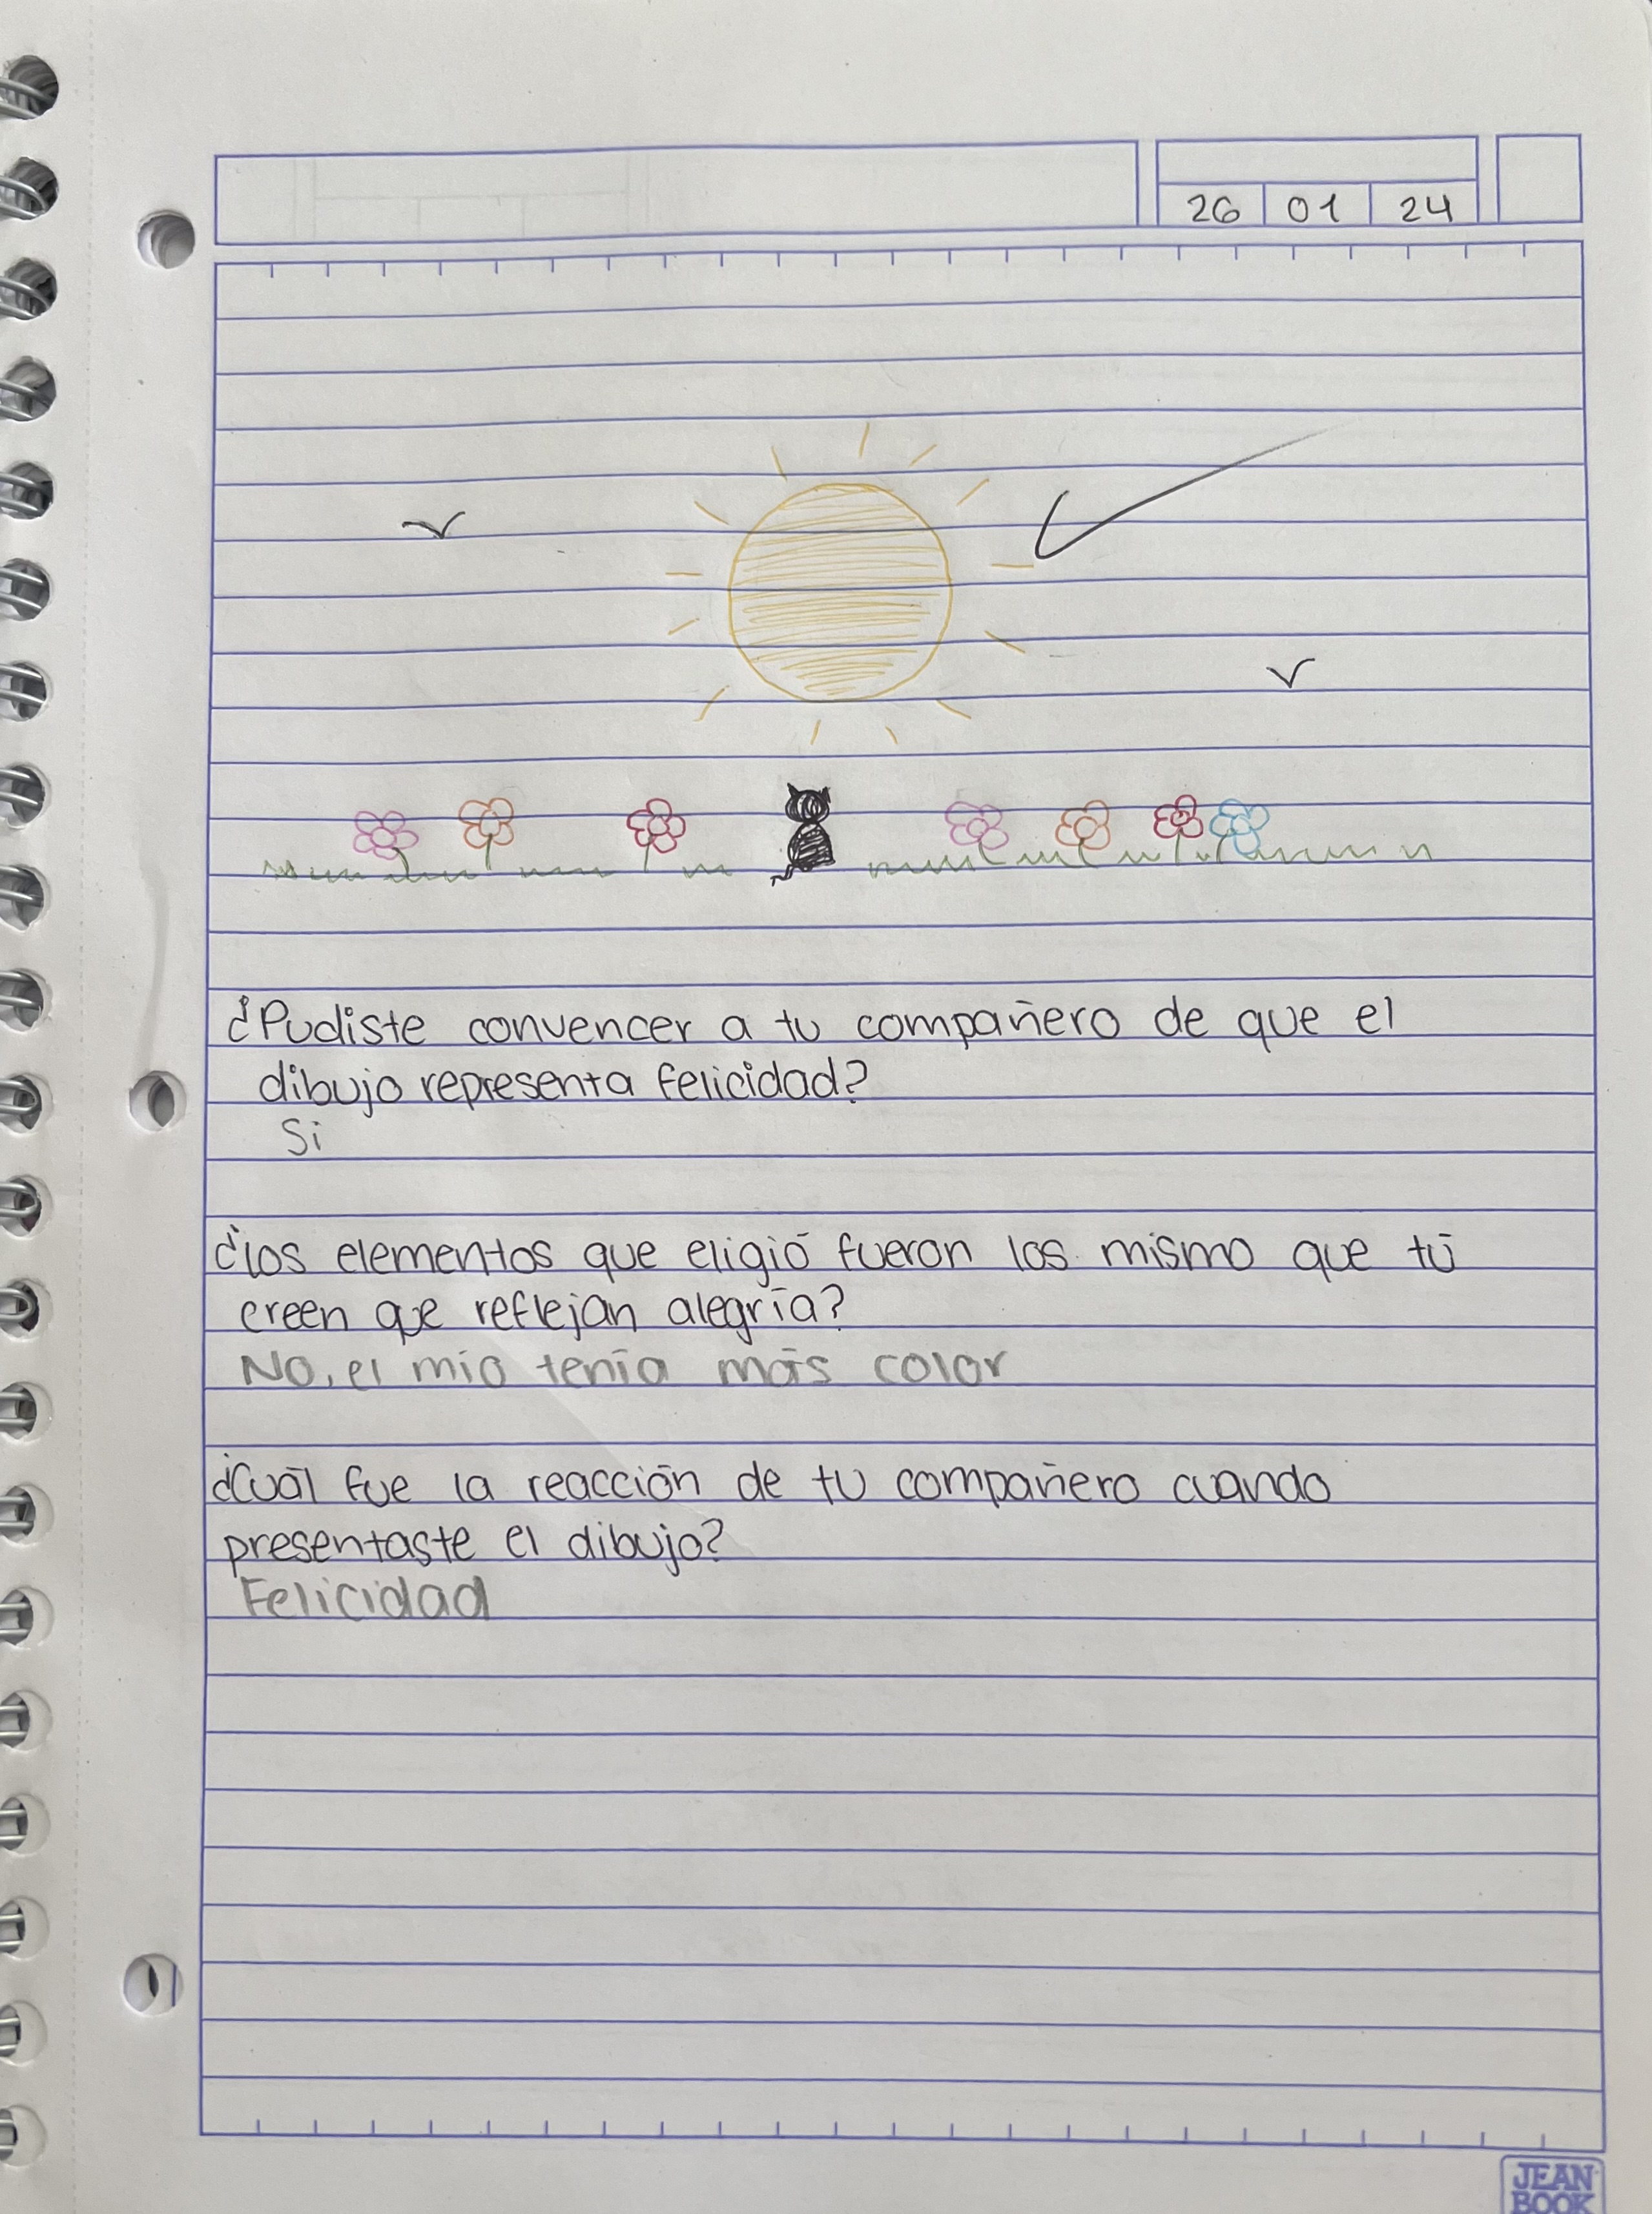 26 01 24
¿Pudiste convencer a tu compañero de que el
dibujo representa felicidad?
Si
¿los elementos que eligió fueron los mismo que tú
creen que reflejan alegría?
No, el mío tenía más color
¿Cuál fue la reacción de tu compañero cuando
presentaste el dibujo?
Felicidad
JEAN
BOOK